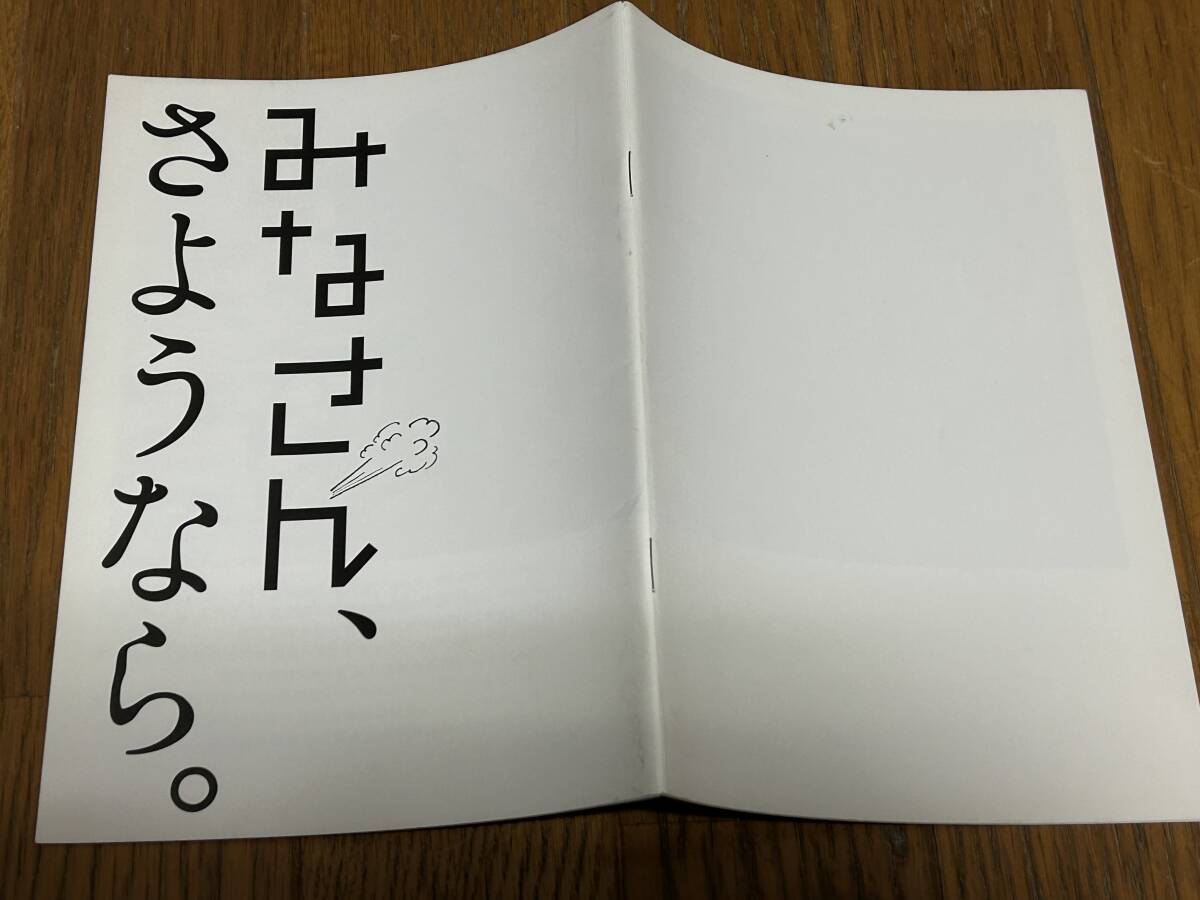 みなさん、
さようなら。